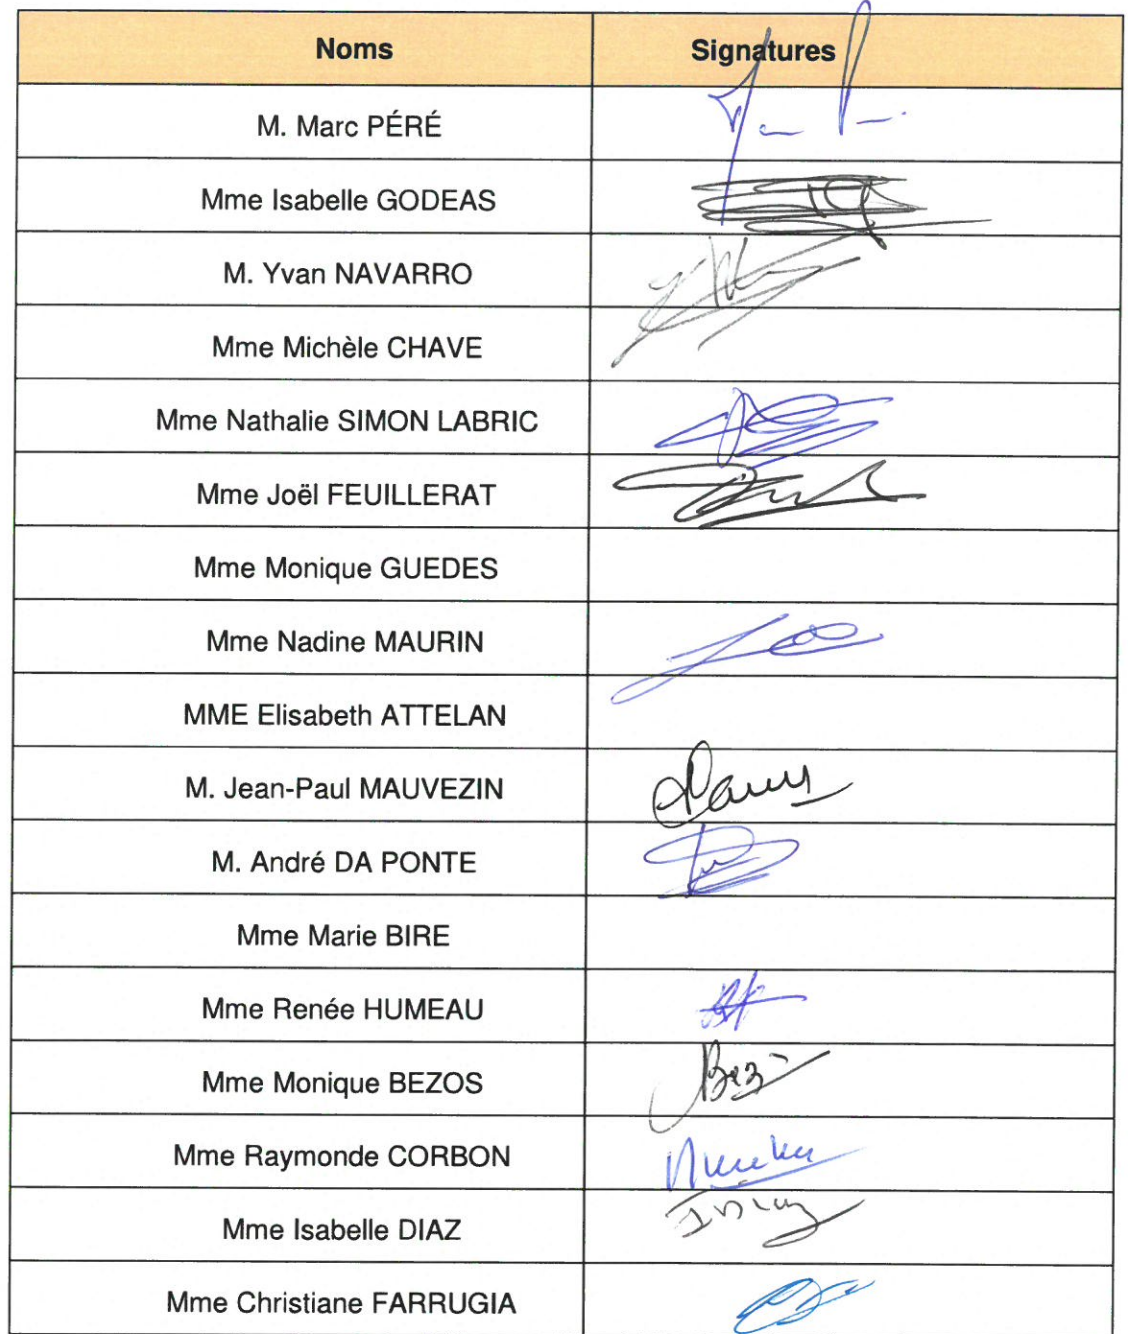 Noms Signatures
M. Marc PÉRÉ
Mme Isabelle GODEAS
M. Yvan NAVARRO
Mme Michèle CHAVE
Mme Nathalie SIMON LABRIC
Mme Joël FEUILLERAT
Mme Monique GUEDES
Mme Nadine MAURIN
MME Elisabeth ATTELAN
M. Jean-Paul MAUVEZIN
M. André DA PONTE
Mme Marie BIRE
Mme Renée HUMEAU
Mme Monique BEZOS
Mme Raymonde CORBON
Mme Isabelle DIAZ
Mme Christiane FARRUGIA